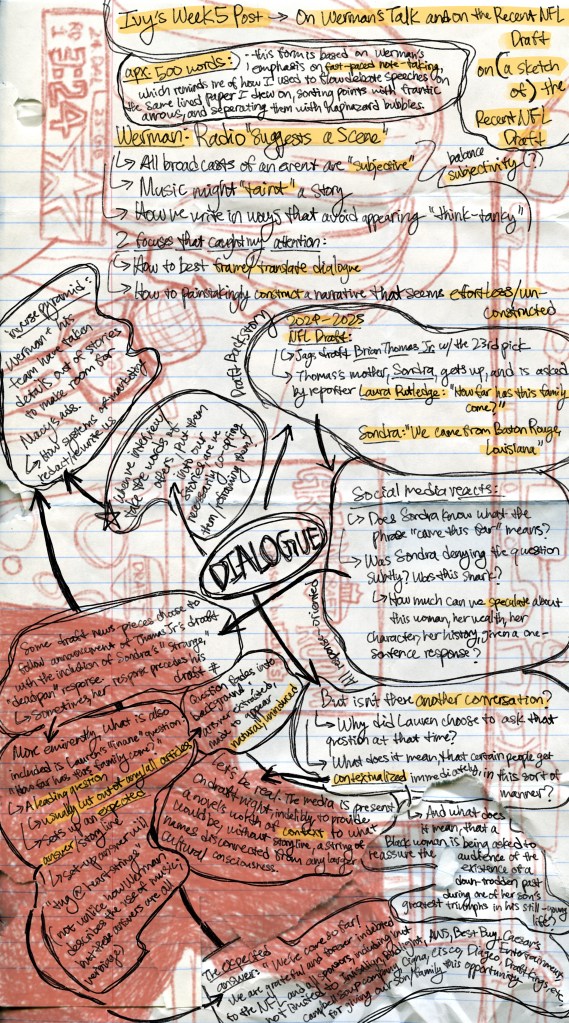 Ivy's Week 5 Post → On Werman's Talk and on the Recent NFL Draft
on (a sketch of) the Recent NFL Draft
apx. 500 words:
this form is based on Werman's
emphasis on fast-paced note-taking,
which reminds me of how I used to flow debate speeches (on
the same lined paper I drew on, sorting points with frantic
arrows, and seperating them with haphazard bubbles.
Werman:- Radio "suggests a scene"
↳ All broadcasts of an event are "subjective"
balance subjectivity (?)
→ Music might "taint" a story
→ How we write in ways that avoid appearing "think-tanky"
2 focuses that caught my attention:
↳ How to best frame/translate dialogue
→ How to painstakingly construct a narrative that seems effortless/un-
constructed
inverse pyramid:
Werman + his
team have taken
details out of stories
to make room for
Navy ads.
↳ How systems of
redact/rewrite us
Draft Backstory
2024-2025
NFL Draft:
↳ Jags draft Brian Thomas Jr. w/ the 23rd pick
→ Thomas's mother, Sondra, gets up, and is asked
by reporter Laura Rutledge: "How far has this family
come?"
Sondra: "We came from Baton Rouge,
Louisiana"
When we interview/
take the words of
others, + put them
into our
stories are we
necessarily co-opting
them, reframing them?
DIALOGUE
Social media reacts:
↳ Does Sondra know what the
phrase "came this far" means?
↳ Was Sondra denying the question
subtly? Was this snark?
↳ How much can we speculate about
this woman, her wealth, her
character, her history, given a one-
sentence response?
All response-oriented
Some draft news pieces choose to
follow announcement of Thomas Jr's draft
with the inclusion of Sondra's "strange,"
"deadpan" response.
↳ Sometimes, her response precedes his
draft #
Question fades into
background +
answer is
made to appear
natural/uninduced
But isn't there another conversation?
↳ Why did Lauren choose to ask that
question at that time?
↳ What does it mean, that certain people get
contextualized immediately in this sort of
manner?
More eminently, what is also
included is Lauren's if "none" question
"How far has this family come?"
↳ A leading question
↳ usually cut out of any/all articles
↳ sets up an expected
answer/storyline
↳ set-up answer will
"tug @ heart-strings"
not unlike how Werman
describes the use of music;
but these answers are all
verbiage)
Let's be real. The media is present
on draft night, indelibly, to provide
a novel's worth of context to what
would be, without storyline, a string of
names disconnected from any larger
cultural consciousness.
↳ And what does
it mean, that a
Black woman is being asked to
reassure the audience of the
existence of a
down-trodden past
during one of her son's
greatest triumphs in his still-young
life?
The expected
answer:
"We've come so far!
We are grateful and forever indebted
to the NFL and its sponsors, including but
not limited to
Campbell soup company, Cigna, Cisco, Diageo, DraftKings, etc.
AWS, Best Buy, Caesar's
Entertainment,
for giving our son/family this opportunity."